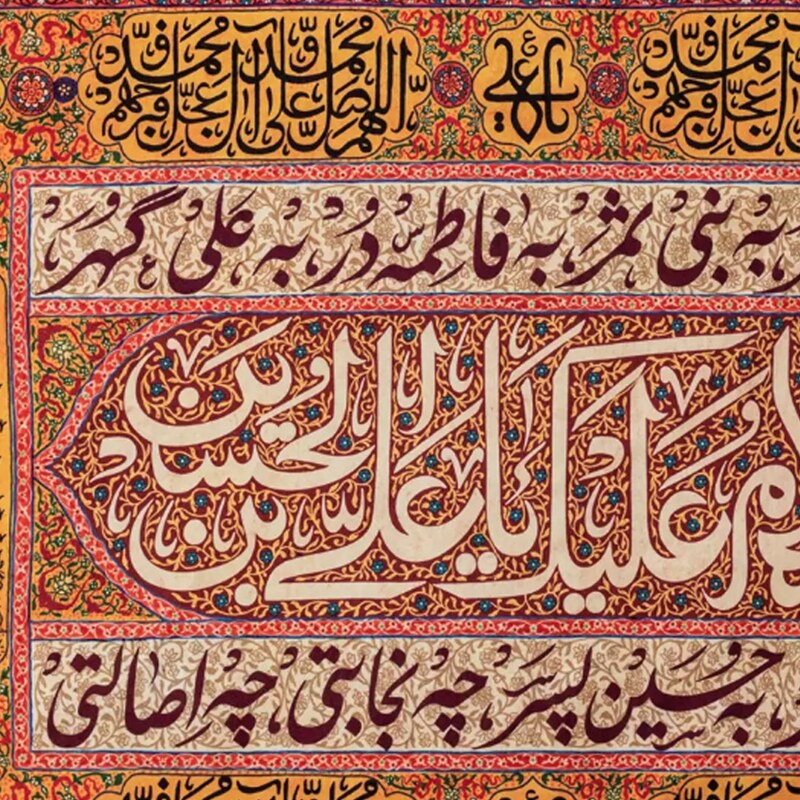 یا علی ع اللهم صل علی محمد و آل محمد و عجل فرجهم
به نبی ثمر به فاطمه س در به علی ع گهر
علیک یا علی بن الحسین
به حسین پسر چه نجابتی چه اصالتی